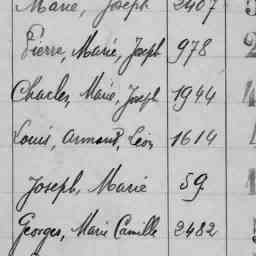 Marie, Joseph 2407
Pierre, Marie, Joseph 978
Charles, Marie, Joseph 1944
Louis, Armand, Léon 1614
Joseph, Marie 59
Georges, Marie Camille 2482